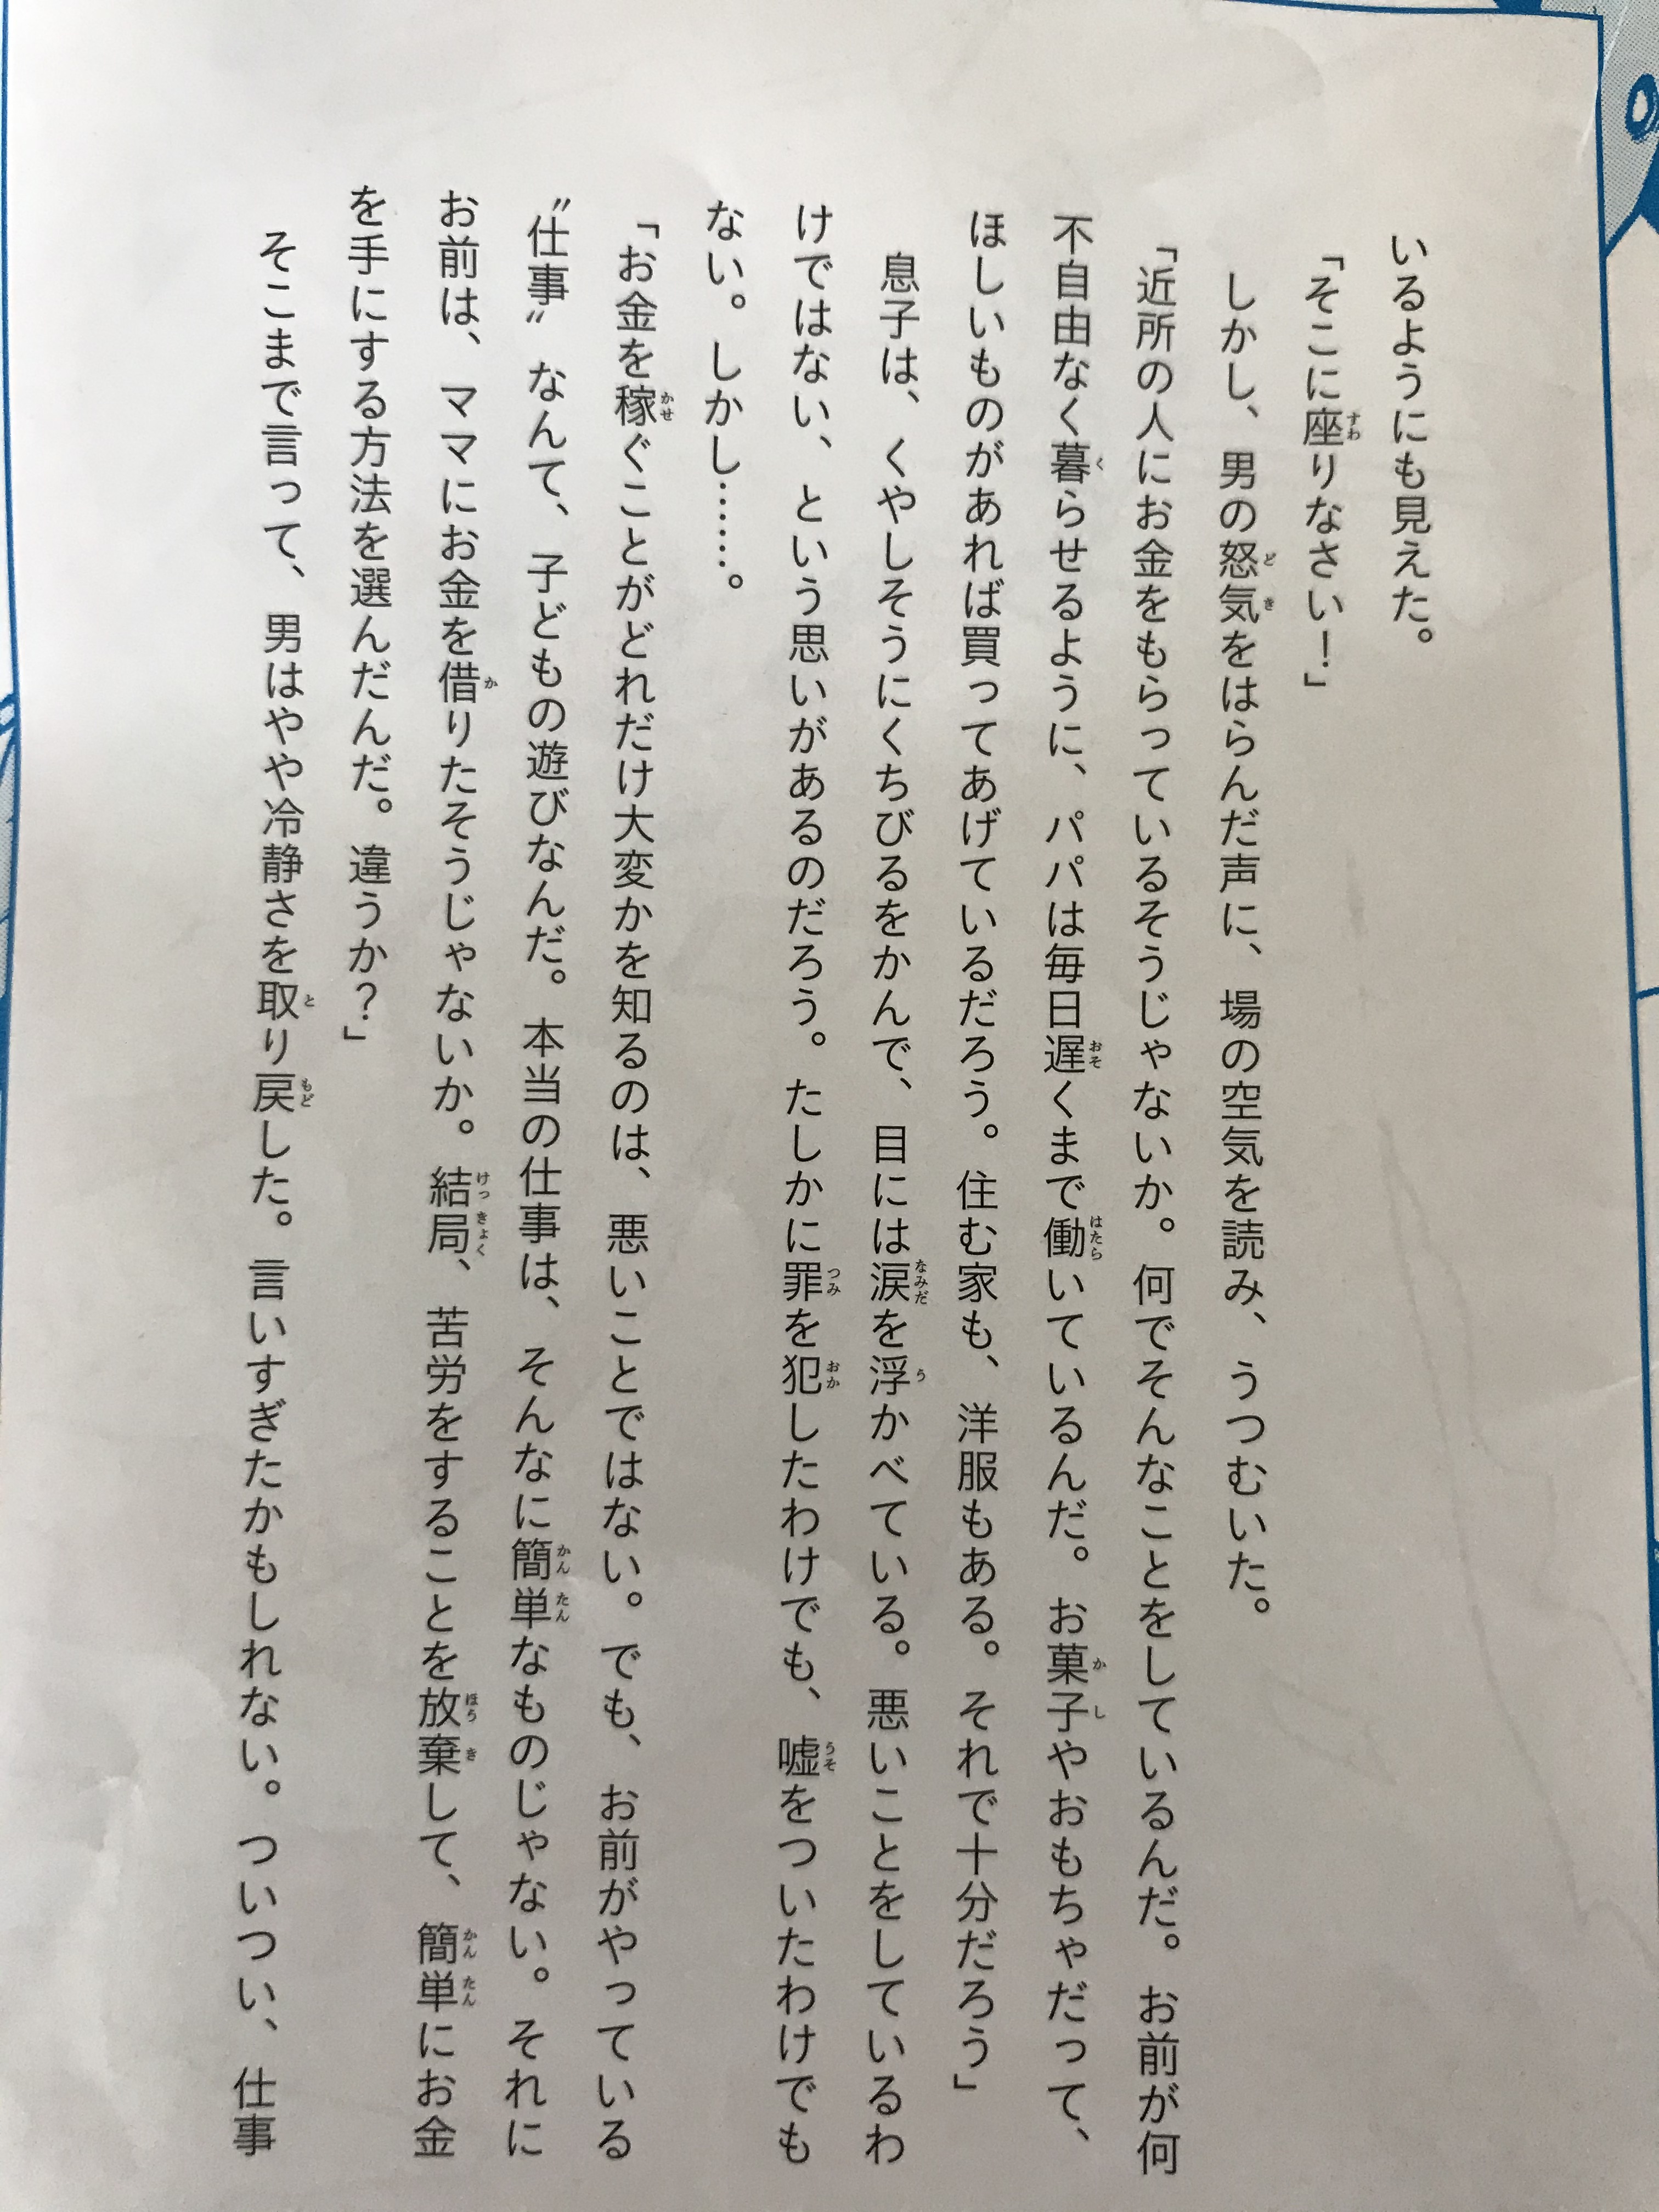 いるようにも見えた。
「そこに座りなさい！」
しかし、男の怒気をはらんだ声に、場の空気を読み、うつむいた。
「近所の人にお金をもらっているそうじゃないか。何でそんなことをしているんだ。お前が何
不自由なく暮らせるように、パパは毎日遅くまで働いているんだ。お菓子やおもちゃだって、
ほしいものがあれば買ってあげているだろう。住む家も、洋服もある。それで十分だろう」
息子は、くやしそうにくちびるをかんで、目には涙を浮かべている。悪いことをしているわ
けではない、という思いがあるのだろう。たしかに罪を犯したわけでも、嘘をついたわけでも
ない。しかし……。
「お金を稼ぐことがどれだけ大変かを知るのは、悪いことではない。でも、お前がやっている
〝仕事〟なんて、子どもの遊びなんだ。本当の仕事は、そんなに簡単なものじゃない。それに
お前は、ママにお金を借りたそうじゃないか。結局、苦労をすることを放棄して、簡単にお金
を手にする方法を選んだんだ。違うか？」
そこまで言って、男はやや冷静さを取り戻した。言いすぎたかもしれない。ついつい、仕事